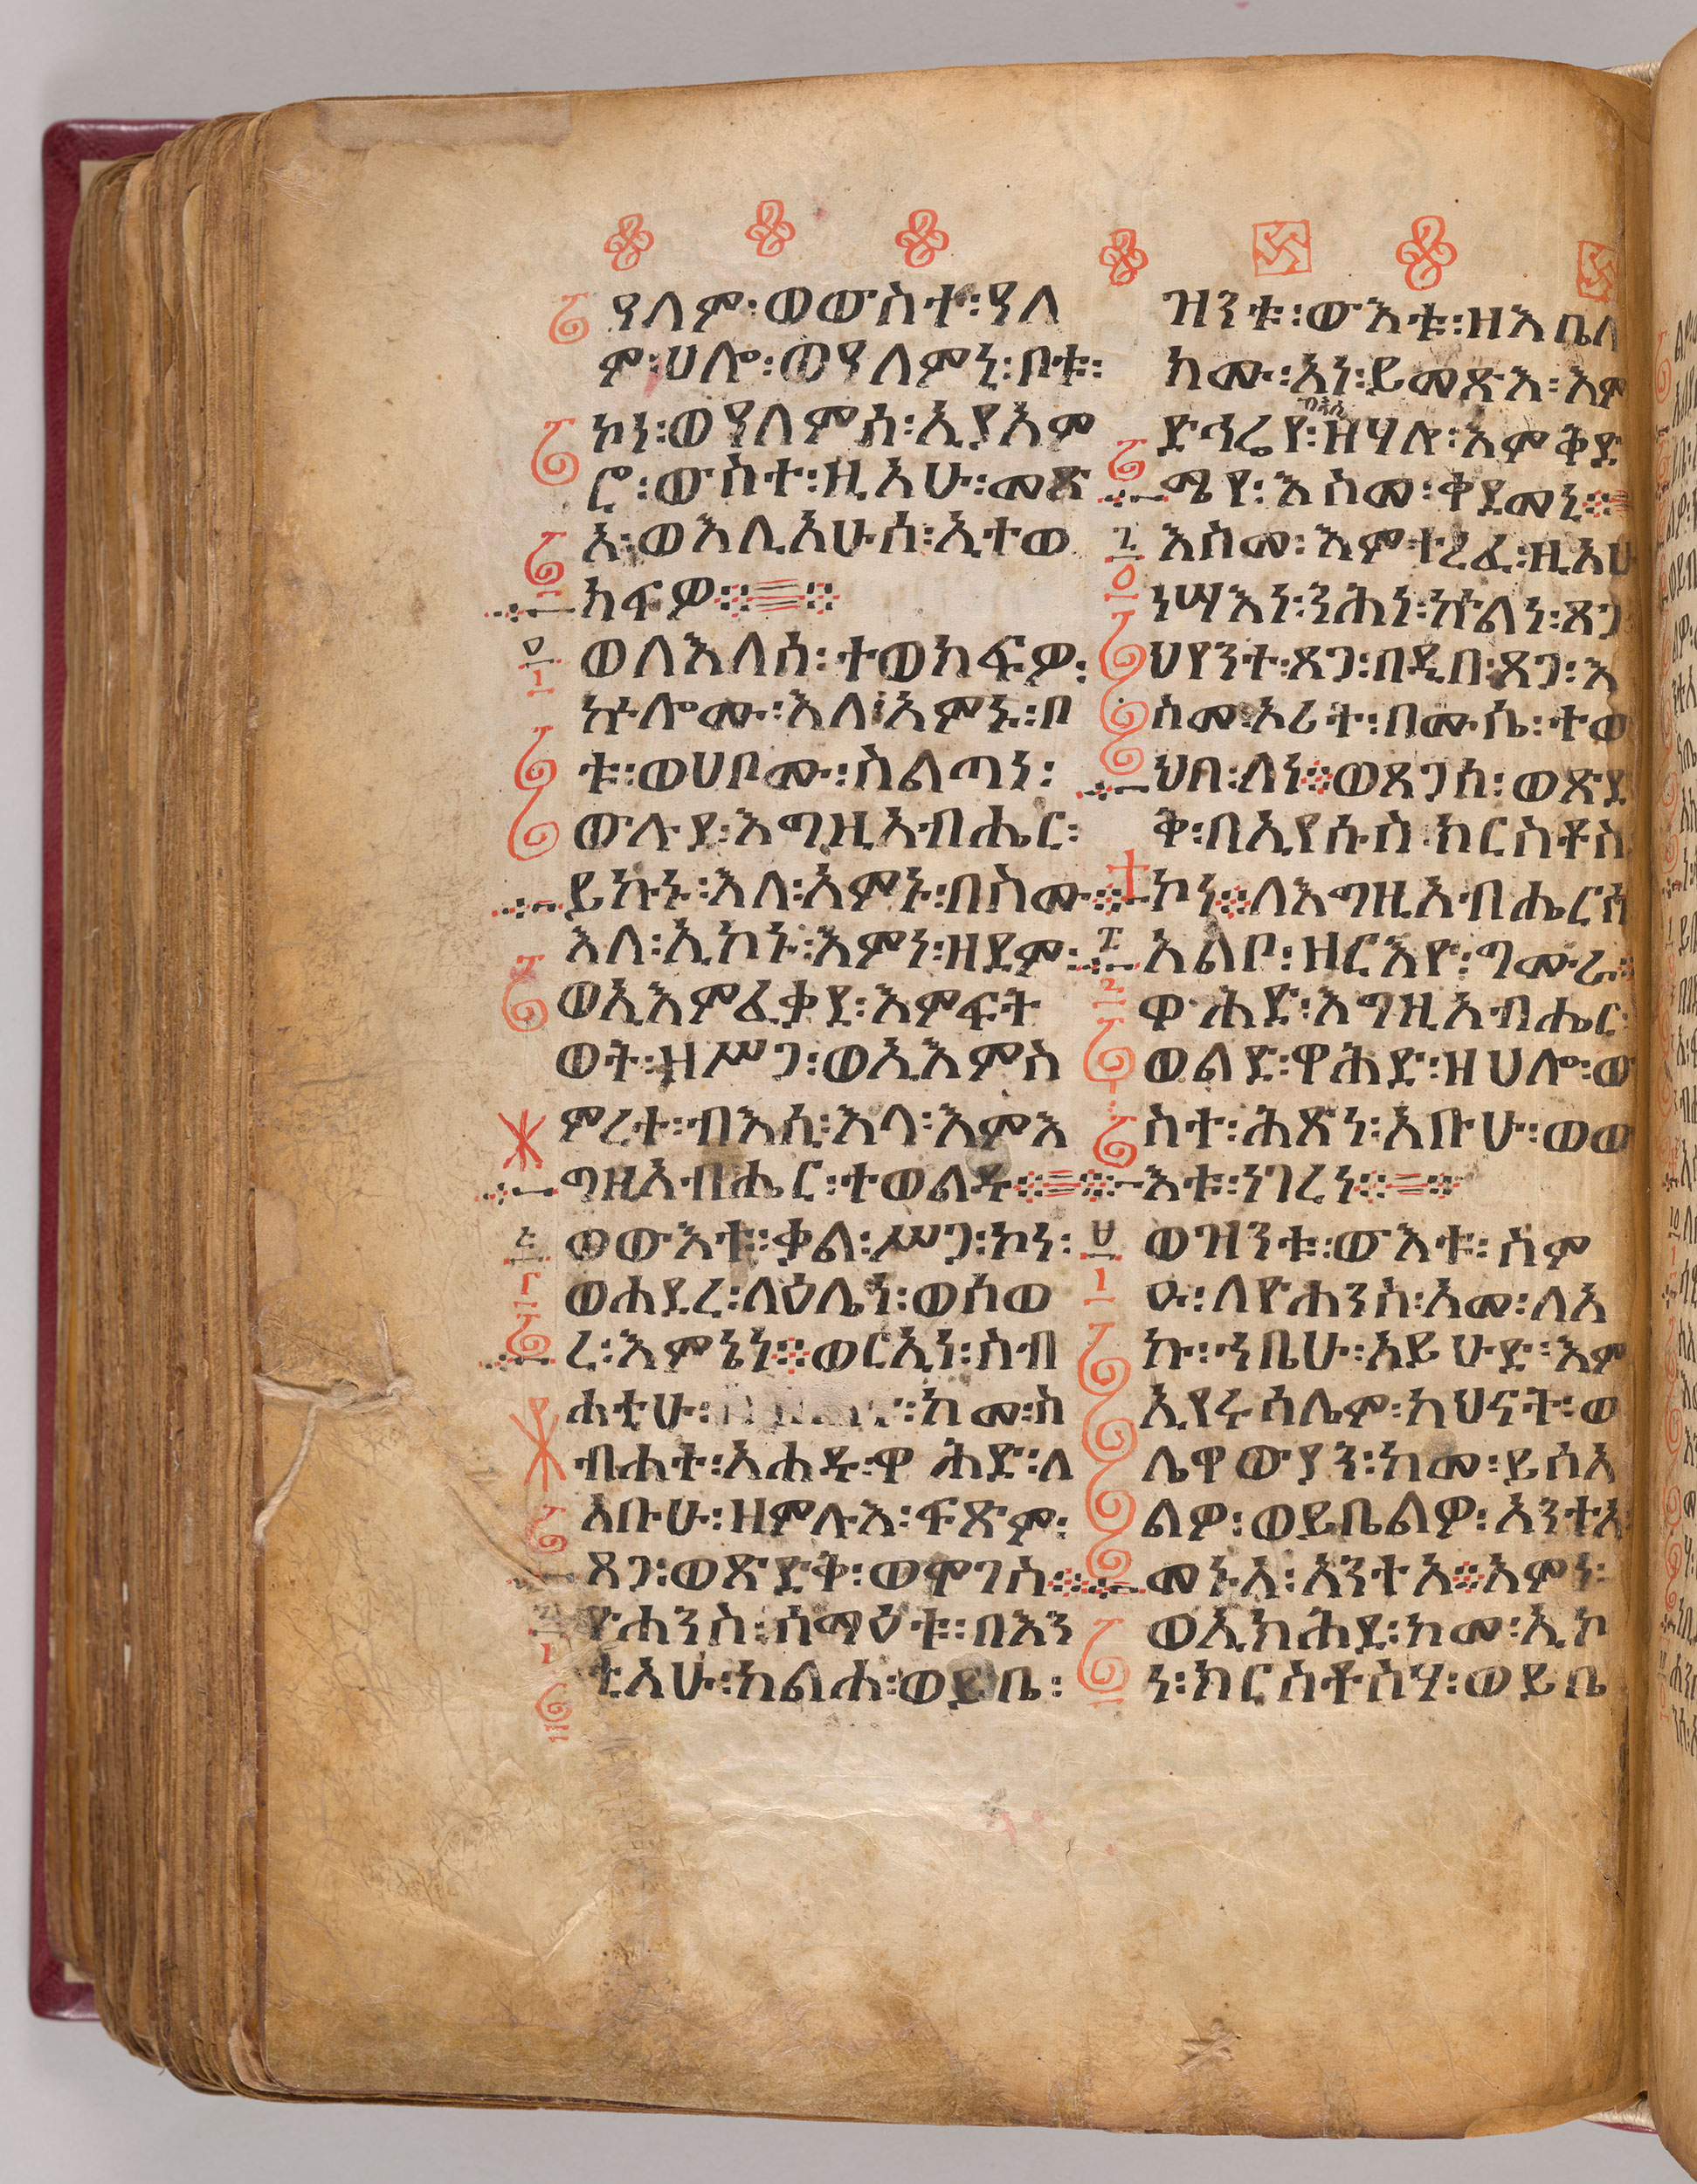 ዓለም፡ወውስተ፡ዓለ
ም፡ሀሎ፡ወዓለምኒ፡ቦቱ፡
ኮነ፡ወዓለምሰ፡ኢያእም
ሮ፡ውስተ፡ዚአሁ፡መጽ
አ፡ወእሊአሁሰ፡ኢተወ
ክፍዎ፨
ወለእለሰ፡ተወክፍዎ፡
ኵሎሙ፡እለ፡አምኑ፡ቦ
ቱ፡ወሀቦሙ፡ስልጣነ፡
ውሉደ፡እግዚአብሔር፡
ይኩኑ፡እለ፡አምኑ፡በስሙ፨
እለ፡ኢኮኑ፡እምነ፡ዘደም፡
ወኢእምፈቃደ፡እምፍት
ወት፡ዘሥጋ፡ወኢእምስ
ምረተ፡ብእሲ፡እላ፡እምእ
ግዚአብሔር፡ተወልዱ፨
ወውእቱ፡ቃል፡ሥጋ፡ኮነ፡
ወሐደረ፡ላዕሌነ፡ወሰወ
ረ፡እምኔነ፨ወርኢነ፡ስብ
ሐቲሁ፡ ከመ፡ስ
ብሐተ፡አሐዱ፡ዋሕድ፡ለ
አቡሁ፡ዘምሉእ፡ፍጹም፡
ጸጋ፡ወጽድቅ፡ወሞገስ፨
ዮሐንስ፡ሰማዕቱ፡በእን
ቲአሁ፡ከልሐ፡ወይቤ፡
ዝንቱ፡ውእቱ፡ዘእቤለ
ክሙ፡እነ፡ይመጽእ፡እም
ብእሲ
ድኅሬየ፡ዘሃሉ፡እምቅድ
ሜየ፡እስመ፡ቀደመኒ፨
እስመ፡እምተረፈ፡ዚአሁ
ነሣእነ፡ንሕነ፡ኵልነ፡ጸጋ
ህየንተ፡ጸጋ፡በዲበ፡ጸጋ፡እ
ስመ፡ኦሪት፡በሙሴ፡ተወ
ህበ፡ለነ፨ወጸጋሰ፡ወጽድ
ቅ፡በኢየሱስ፡ክርስቶስ
ኮነ፨ለእግዚአብሔርሰ
አልቦ፡ዘርእዮ፡ግሙራ፡
ዋሕድ፡እግዚአብሔር
ወልድ፡ዋሕድ፡ዘሀሎ፡ው
ስተ፡ሕጽነ፡አቡሁ፡ወው
እቱ፡ነገረነ፨
ወዝንቱ፡ውእቱ፡ስም
ዑ፡ለዮሐንስ፡አመ፡ለአ
ኩ፡ኀቤሁ፡አይሁድ፡እም
ኢየሩሳሌም፡ካህናት፡ወ
ሌዋውያን፡ከመ፡ይሰእ
ልዎ፡ወይቤልዎ፡አንተአ
መኑአ፡አንተአ፨አምነ፡
ወኢክሕደ፡ከመ፡ኢኮ
ነ፡ክርስቶስሃ፡ወይቤ